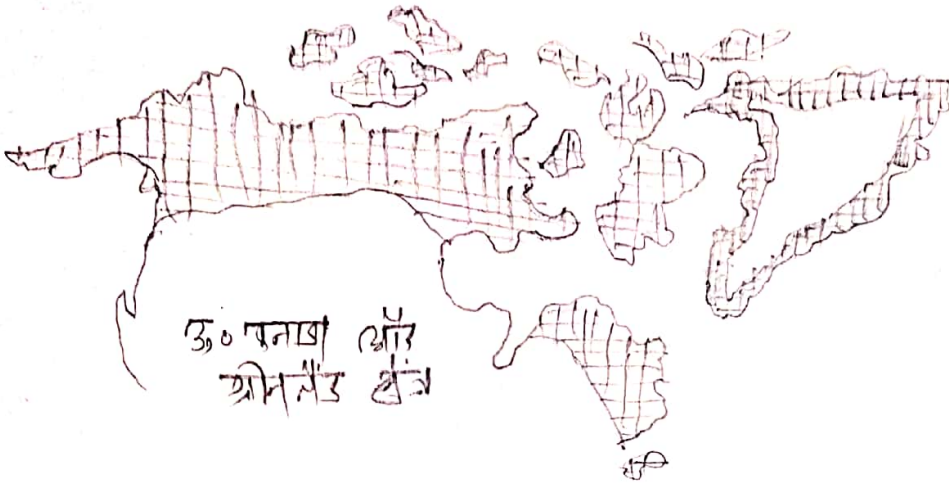 उ० कनाडा और
ग्रीनलैंड क्षेत्र